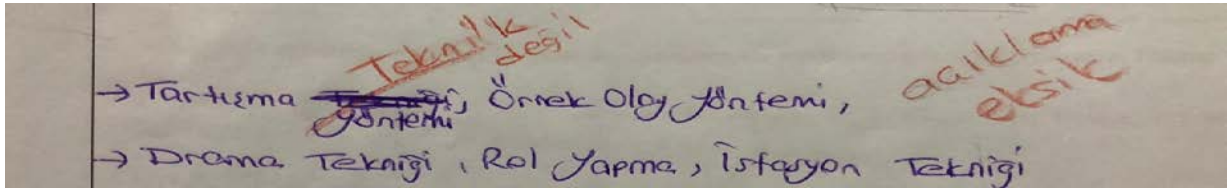 Teknik
değil
açıklama
eksik
→ Tartışma yöntemi, Örnek Olay yöntemi,
→ Drama Tekniği, Rol Yapma, İstasyon Tekniği